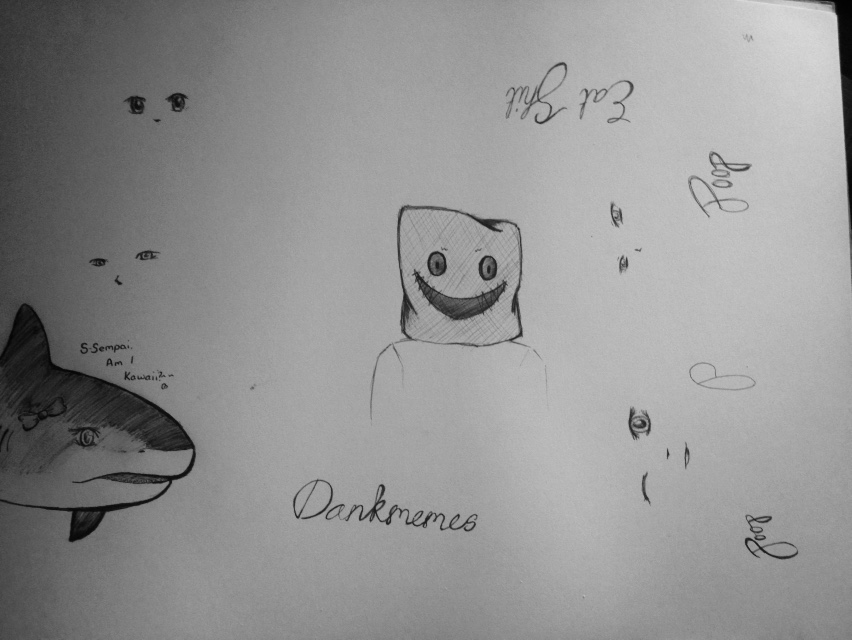 Eat Shit
Poop
S-Sempai.
Am I
Kawaii?
Dankmemes
Poop